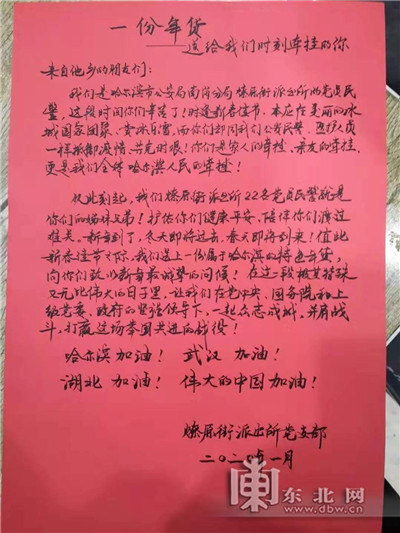 一份年货
——送给我们时刻牵挂的你
来自他乡的朋友们：
我们是哈尔滨市公安局南岗分局燎原街派出所的党员民
警，这段时间你们辛苦了！时逢新春佳节，本应在美丽的冰
城国家团聚、赏冰乐雪，而你们却同我们公安民警、医护人员
一样抗御疫情、共克时艰！你们是家人的牵挂、亲友的牵挂、
更是我们全体哈尔滨人民的牵挂！
从此刻起，我们燎原街派出所22名党员民警就是
你们的姐妹兄弟！护佑你们健康平安、陪伴你们渡过
难关。新年到了，冬天即将过去，春天即将到来！值此
新春佳节之际，我们送上一份属于哈尔滨的特色年货，
向你们致以新年最诚挚的问候！在这一段极其特殊
又无比伟大的日子里，让我们在党中央、国务院和上
级党委、政府的坚强领导下，一起众志成城，并肩战
斗，打赢这场举国共进的战役！
哈尔滨加油！ 武汉 加油！
湖北 加油！ 伟大的中国加油！
燎原街派出所党支部
二〇二〇年一月
東北网
www.dbw.cn